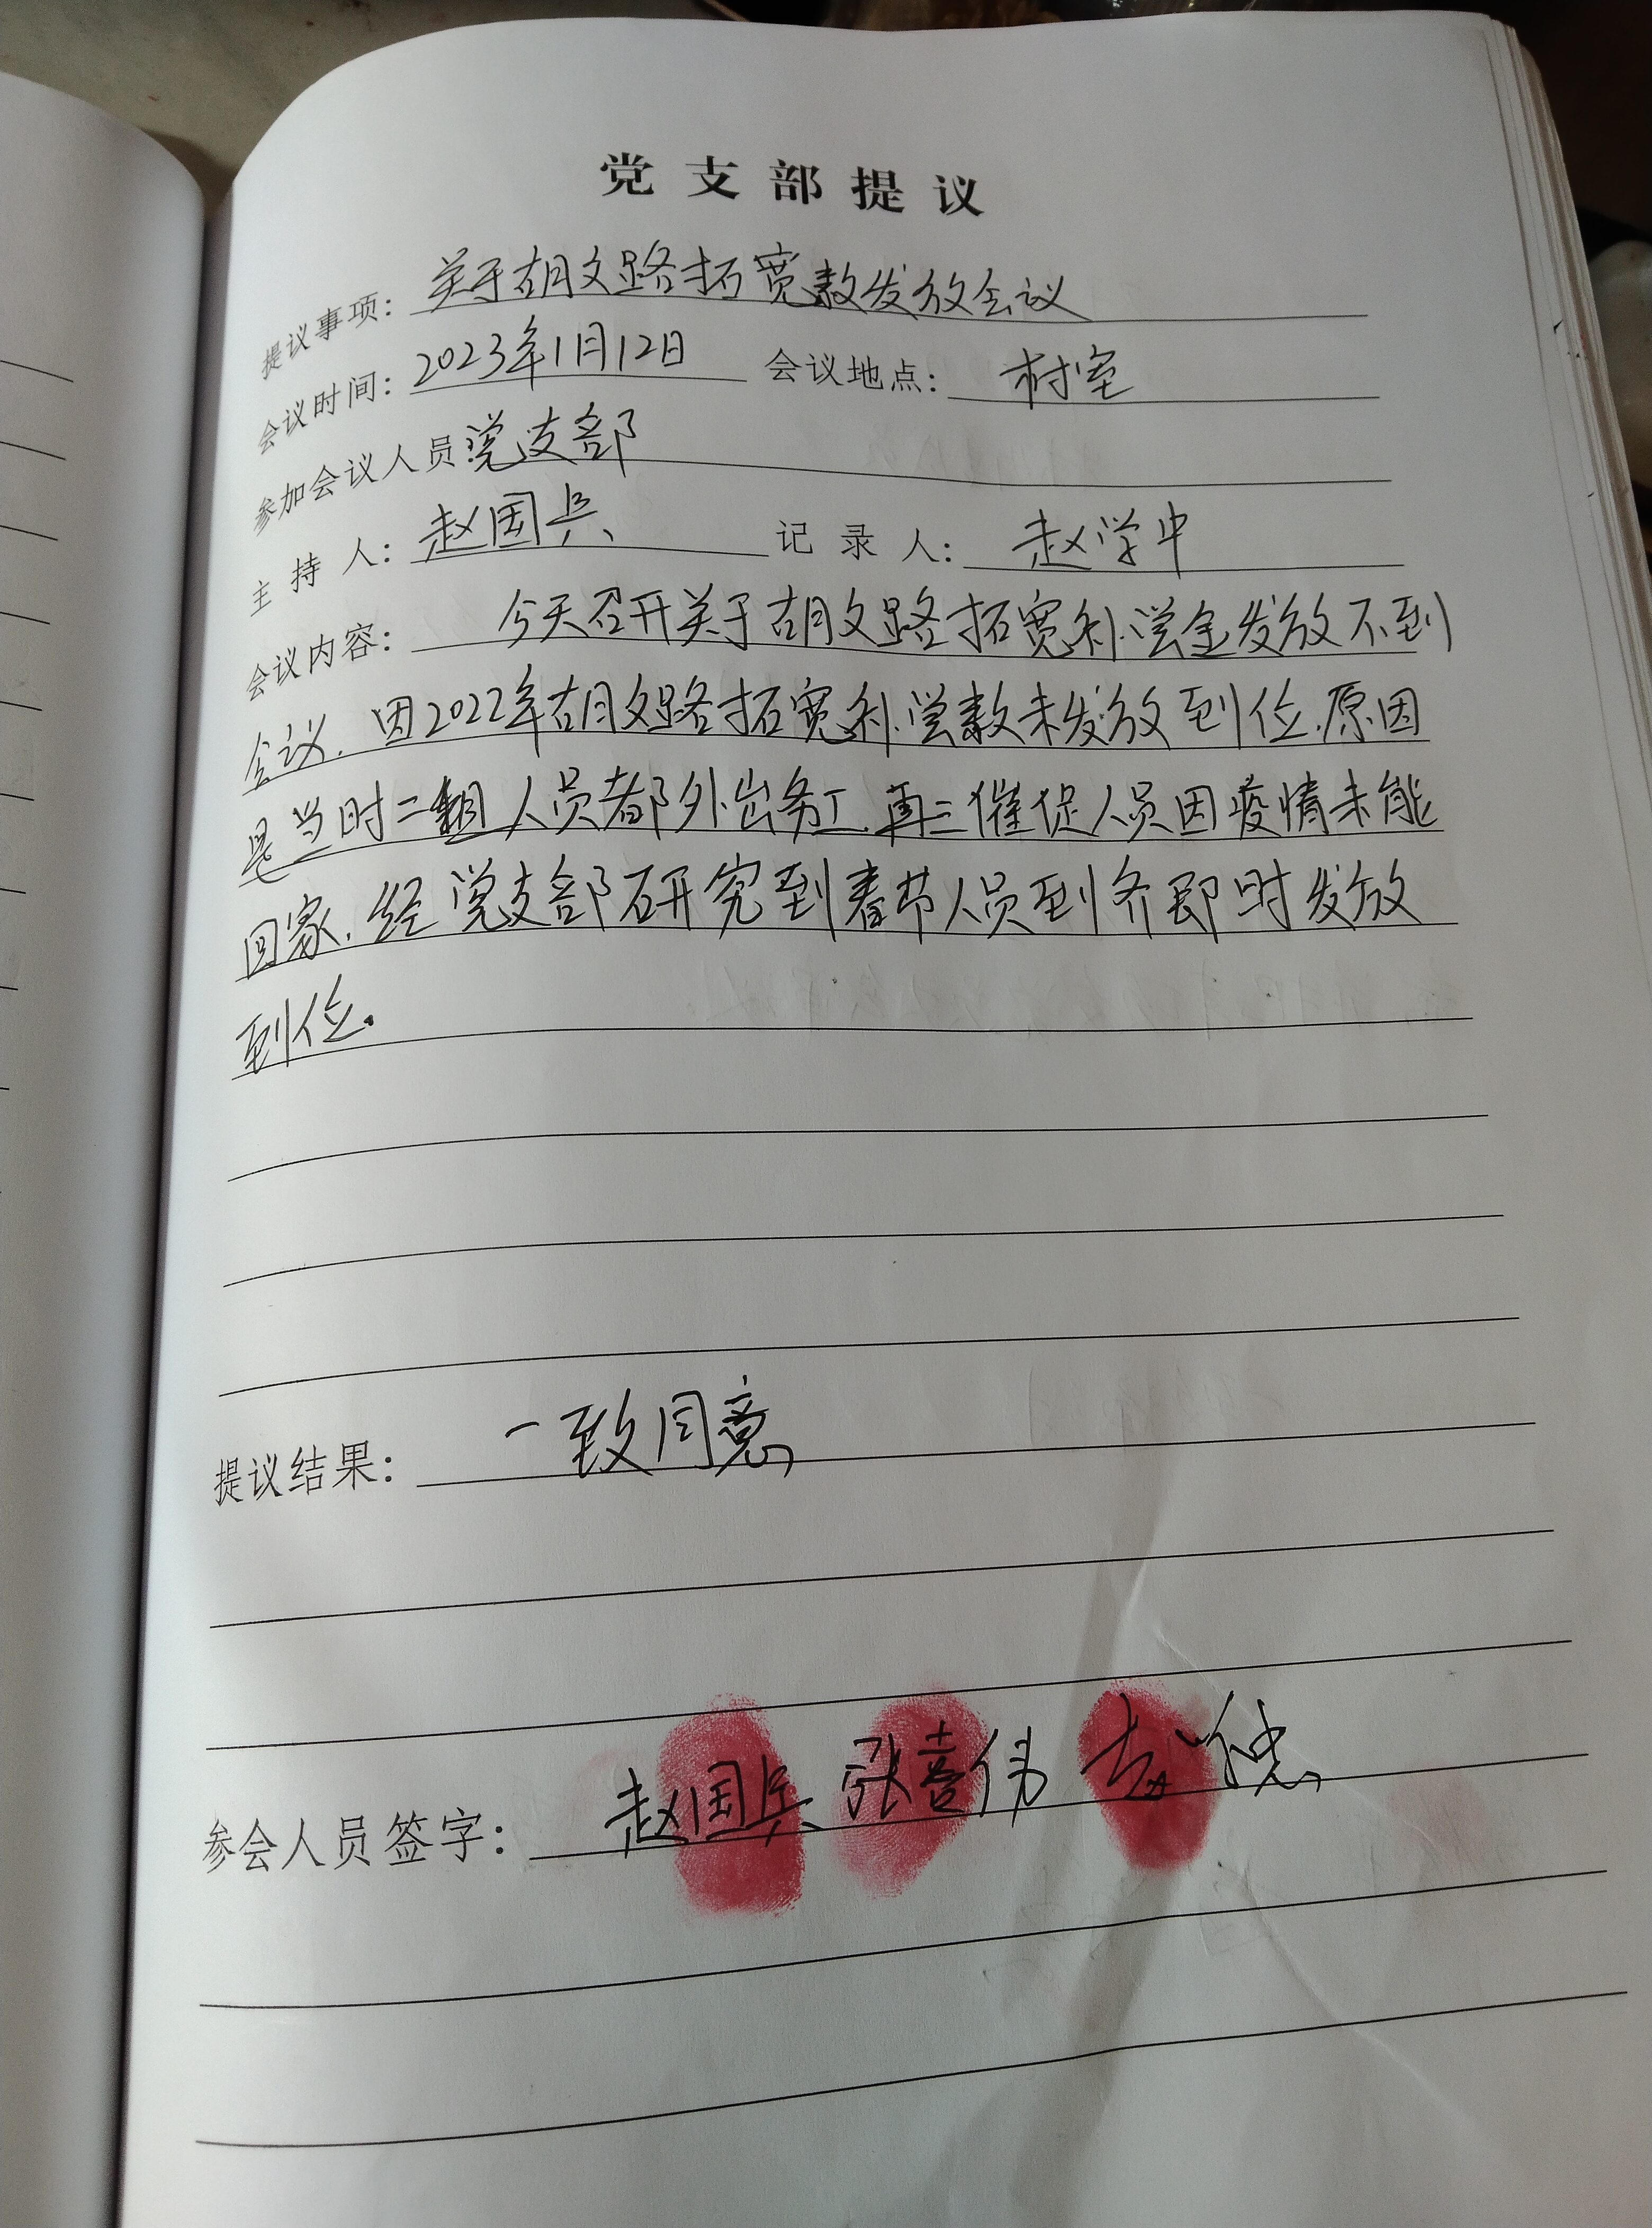 党支部提议
提议事项：关于胡文路拓宽款发放会议
会议时间：2023年1月12日 会议地点：村室
参加会议人员：党支部
主持人：赵国兵 记录人：赵学中
会议内容：今天召开关于胡文路拓宽补偿金发放不到
会议.因2022年胡文路拓宽补偿款未发放到位.原因
是当时二组人员都外出务工.再三催促人员因疫情未能
回家.经党支部研究到春节人员到齐即时发放
到位.
提议结果：一致同意
参会人员签字：赵国兵 张喜伟